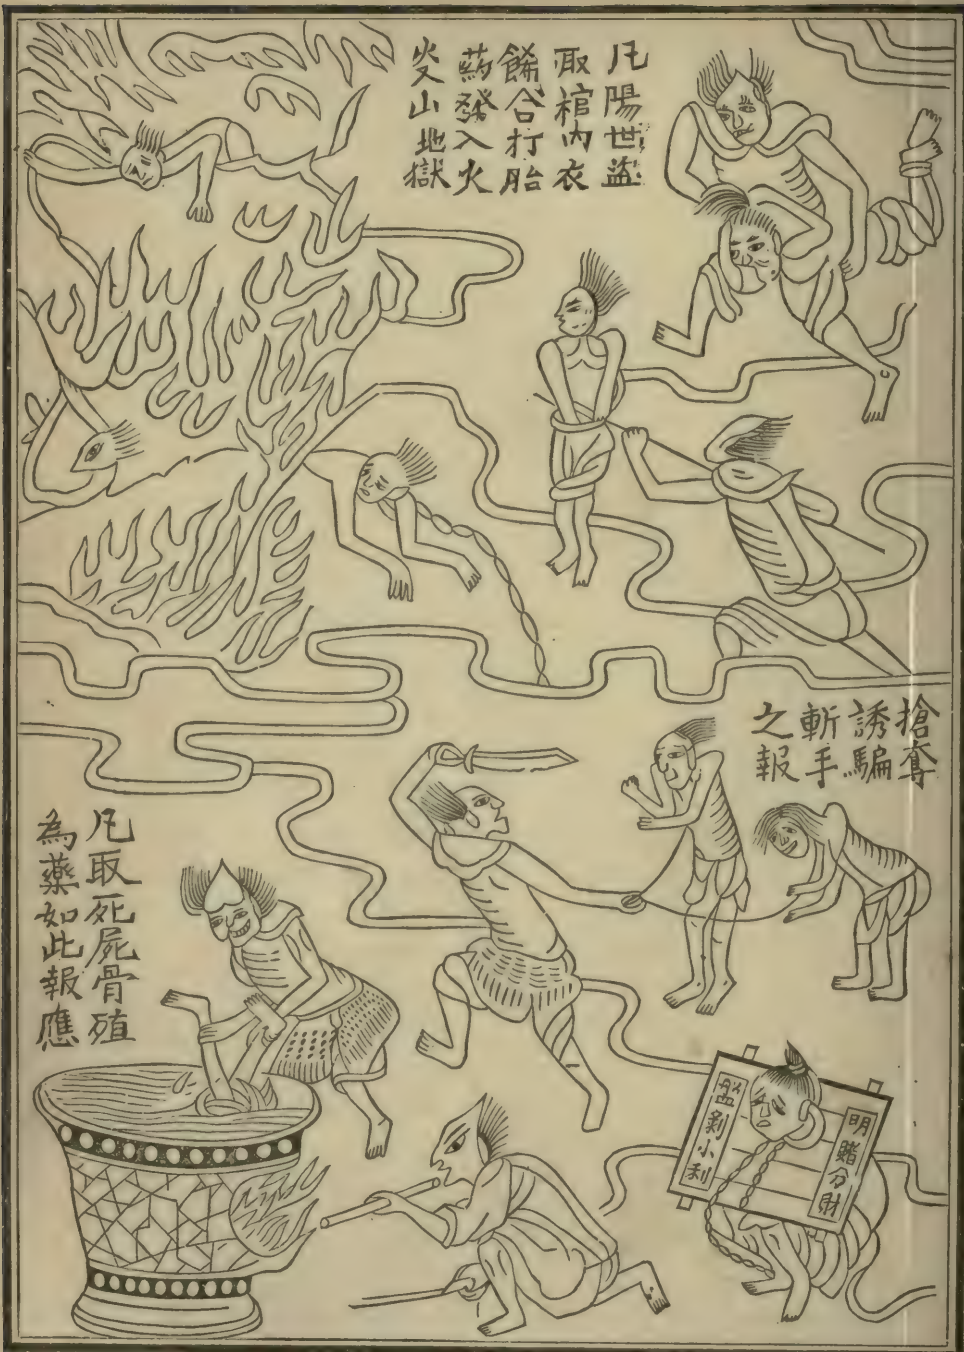 凡陽世盜
取棺內衣
餙合打胎
葯發入火
炎山地獄
搶奪
誘騙
斬手
之報
凡取死屍骨殖
為藥如此報應
明賭分財
盤剝小利